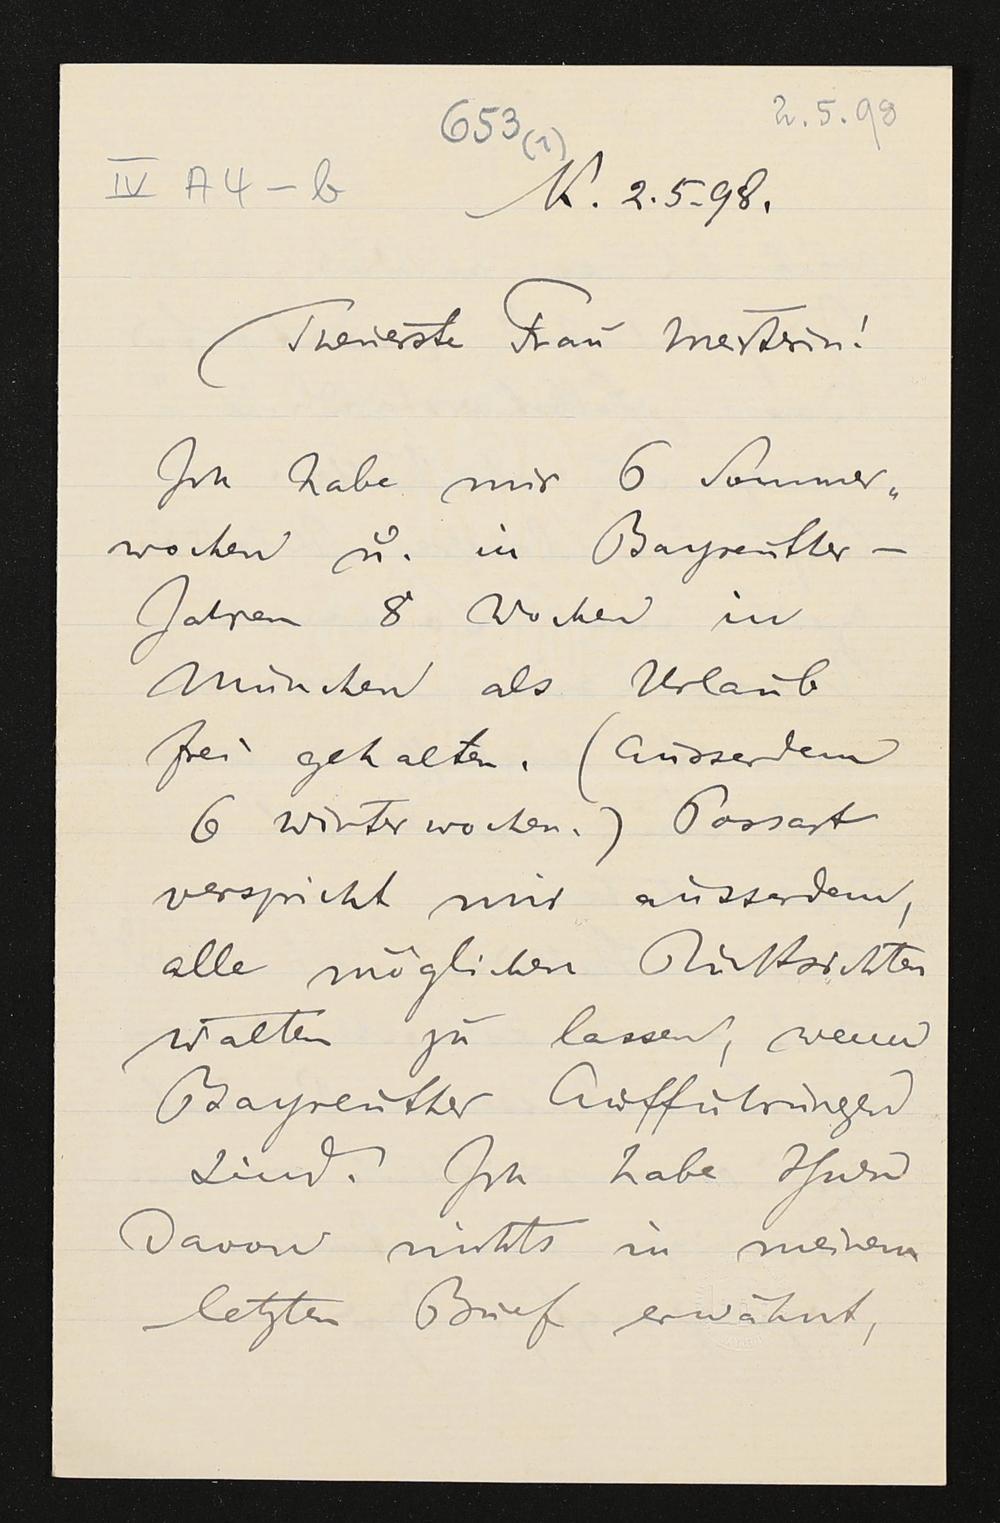 653 (1)
2.5.98
IV A4-b
K. 2.5.98.
Theuerste Frau Meisterin!
Ich habe mir 6 Sommer„
wochen u. in Bayreuther–
Jahren 8 Wochen in
München als Urlaub
frei gehalten. (Ausserdem
6 Winterwochen.) Possart
verspricht mir ausserdem,
alle möglichen Rücksichten
walten zu lassen, wenn
Bayreuther Aufführungen
sind. Ich habe Ihnen
davon nichts in meinem
letzten Brief erwähnt,